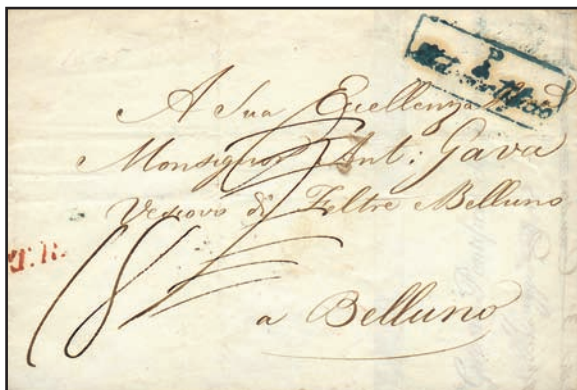 P.
A Sua Eccellenza
Monsignor Ant: Gava
Vescovo di Feltre Belluno
T.R.
a Belluno